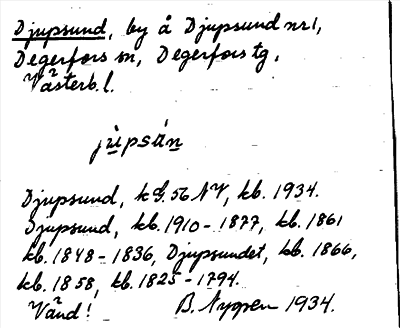 Djupsund, by å Djupsund nr 1,
Degerfors sn, Degerfors tg,
Västerb. l.
jùpsán
Djupsund, kbl. 56 NV, kb. 1934.
Djupsund, kb. 1910-1877, kb. 1861
kb. 1848-1836, Djupsundet, kb. 1866,
kb. 1858, kb. 1825-1794.
Vänd! B. Nyppen 1934.